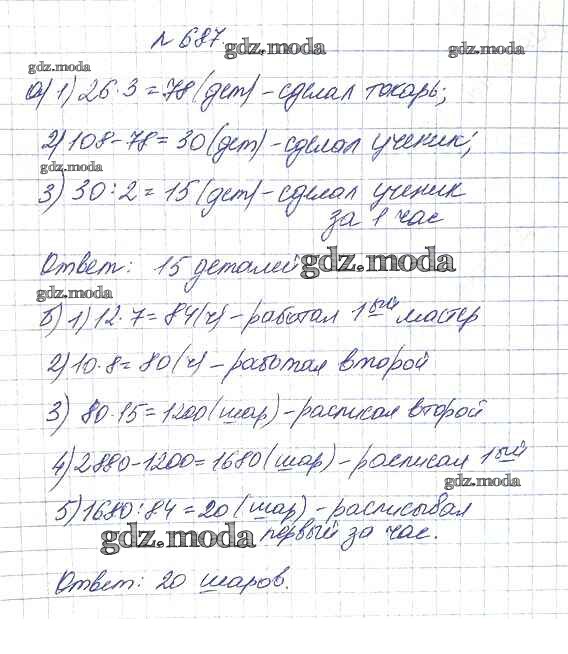 № 687.
gdz.moda
gdz.moda
gdz.moda
а) 1) 26·3 = 78 (дет) – сделал токарь;
2) 108 – 78 = 30 (дет) – сделал ученик;
gdz.moda
3) 30 : 2 = 15 (дет) – сделал ученик
за 1 час
Ответ: 15 деталей
gdz.moda
gdz.moda
б) 1) 12·7 = 84 (ч) – работал 1ый мастер
2) 10·8 = 80 (ч) – работал второй
3) 80·15 = 1200 (шар) – расписал второй
4) 2880 – 1200 = 1680 (шар) – расписал 1ый
gdz.moda
5) 1680 : 84 = 20 (шар) – расписывал
gdz.moda
первый за час.
Ответ: 20 шаров.